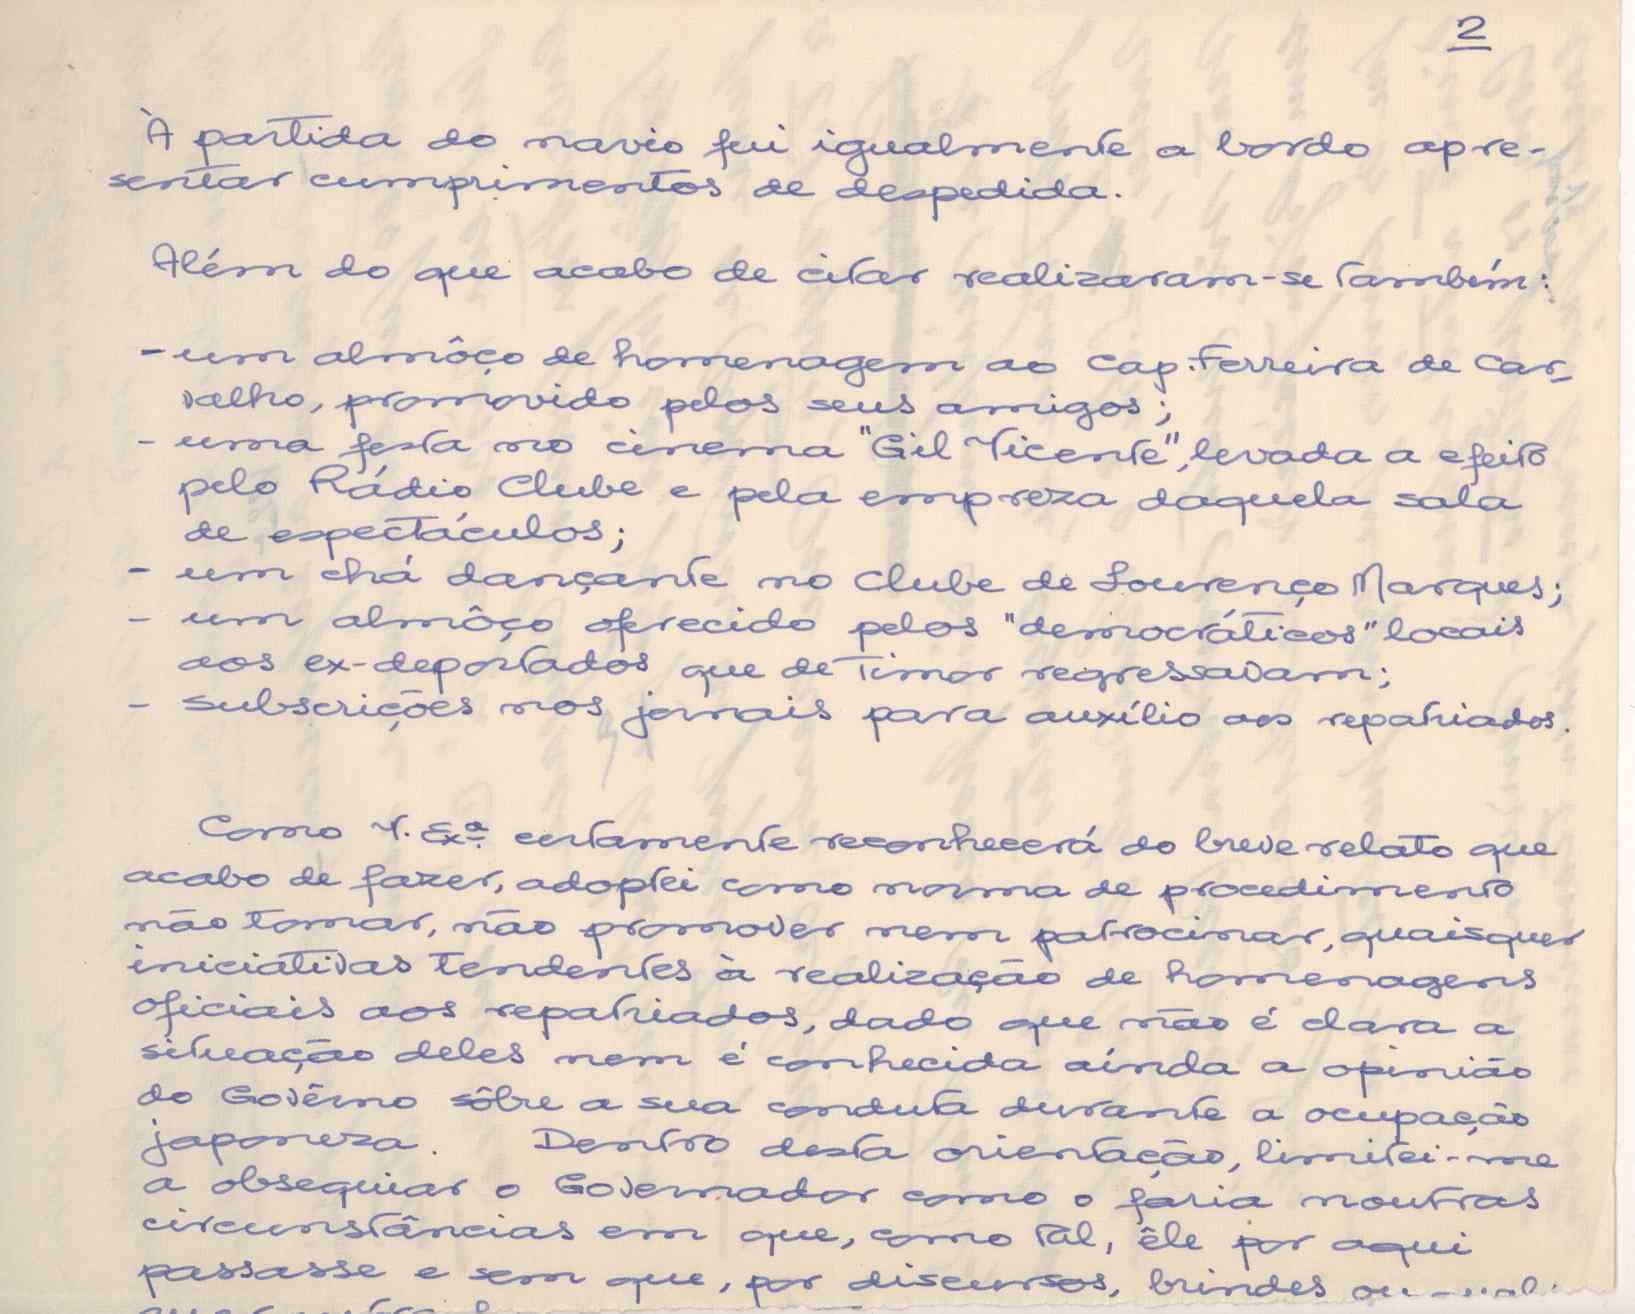 2
À partida do navio fui igualmente a bordo apre-
sentar cumprimentos de despedida.
Além do que acabo de citar realizaram-se também:
- um almôço de homenagem ao Cap. Ferreira de Car-
valho, promovido pelos seus amigos;
- uma festa no cinema "Gil Vicente", levada a efeito
pelo Rádio Clube e pela empreza daquela sala
de espectáculos;
- um chá dançante no Clube de Lourenço Marques;
- um almôço oferecido pelos "democráticos" locais
aos ex-deportados que de Timor regressavam;
- Subscrições nos jornais para auxílio aos repatriados.
Como V. Exª. certamente reconhecerá do breve relato que
acabo de fazer, adoptei como norma de procedimento
não tomar, não promover nem patrocinar, quaisquer
iniciativas tendentes à realização de homenagens
oficiais aos repatriados, dado que não é clara a
situação deles nem é conhecida ainda a opinião
do Govêrno sôbre a sua conduta durante a ocupação
japoneza. Dentro desta orientação, limitei-me
a obsequiar o Governador como o faria noutras
circunstâncias em que, como tal, êle por aqui
passasse e sem que, por discursos, brindes ou